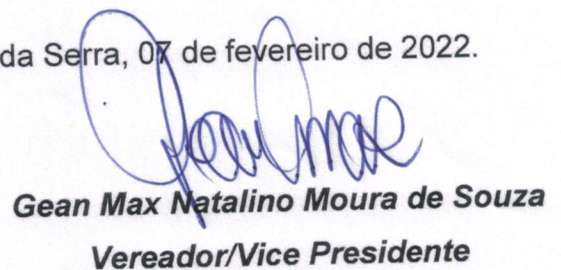 da Serra, 07 de fevereiro de 2022.
Gean Max
Gean Max Natalino Moura de Souza
Vereador/Vice Presidente